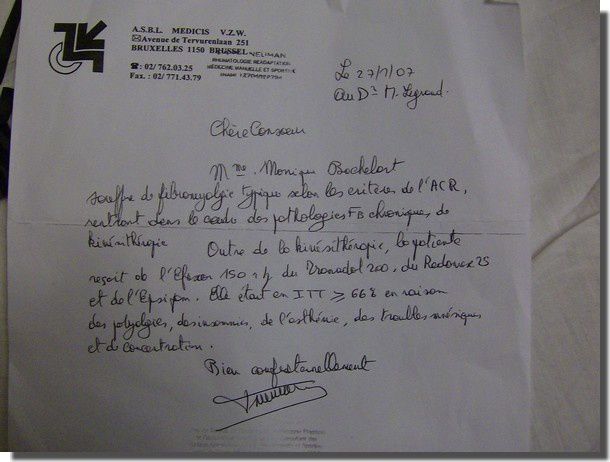 A.S.B.L. MEDICIS V.Z.W.
Avenue de Tervurenlaan 251
BRUXELLES 1150 BRUSSEL
NEUMAN
RHUMATOLOGIE READAPTATION
MÉDECINE MANUELLE ET SPORTIVE
☎: 02/ 762.03.25
Fax. : 02/ 771.43.79
Le 27/1/07
au Dr M. Legrand.
Chère Consoeur
Mme. Monique Bochelart
souffre de fibromyalgie typique selon les critères de l'ACR,
rentrant dans le cadre des pathologies FB chroniques de
kinésithérapie
Outre de la kinésithérapie, la patiente
reçoit de l'Efexor 150 du Tranadol 200, du Redomex 25
et de l'Epsipam. Elle était en ITT ≥ 66% en raison
des polyalgies, des insomnies, de l'asthénie, des troubles mnésiques
et de concentration.
Bien confraternellement